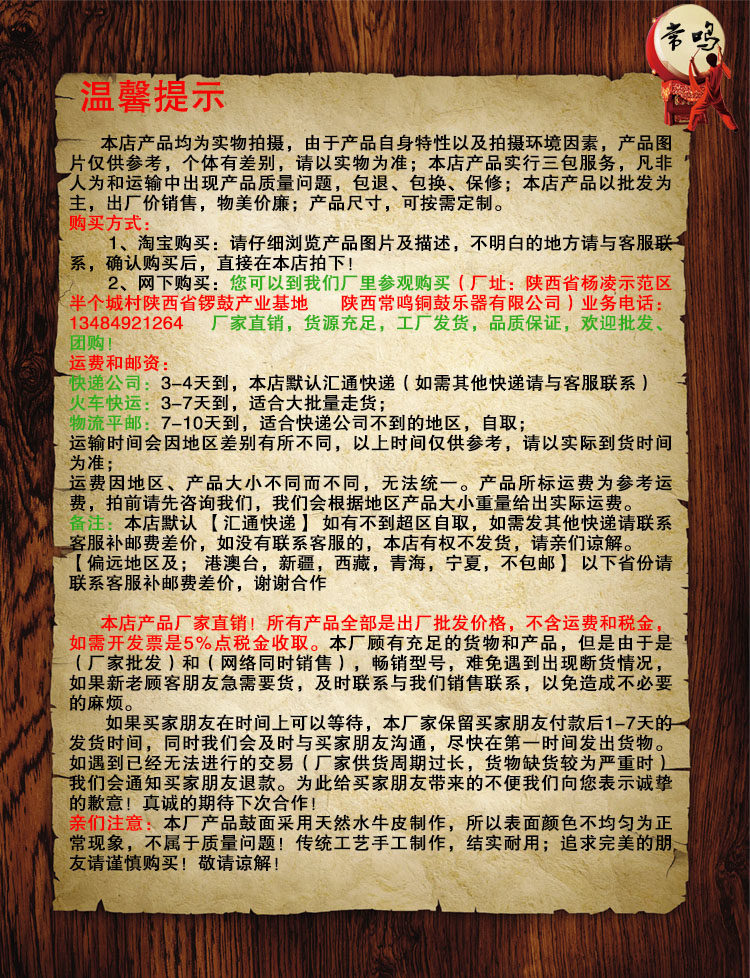 常鸣
温馨提示
本店产品均为实物拍摄，由于产品自身特性以及拍摄环境因素，产品图
片仅供参考，个体有差别，请以实物为准；本店产品实行三包服务，凡非
人为和运输中出现产品质量问题，包退、包换、保修；本店产品以批发为
主，出厂价销售，物美价廉；产品尺寸，可按需定制。
购买方式：
1、淘宝购买：请仔细浏览产品图片及描述，不明白的地方请与客服联
系，确认购买后，直接在本店拍下！
2、网下购买：您可以到我们厂里参观购买（厂址：陕西省杨凌示范区
半个城村陕西省锣鼓产业基地 陕西常鸣铜鼓乐器有限公司）业务电话：
13484921264 厂家直销，货源充足，工厂发货，品质保证，欢迎批发、
团购！
运费和邮资：
快递公司：3-4天到，本店默认汇通快递（如需其他快递请与客服联系）
火车快运：3-7天到，适合大批量走货；
物流平邮：7-10天到，适合快递公司不到的地区，自取；
运输时间会因地区差别有所不同，以上时间仅供参考，请以实际到货时间
为准；
运费因地区、产品大小不同而不同，无法统一。产品所标运费为参考运
费，拍前请先咨询我们，我们会根据地区产品大小重量给出实际运费。
备注：本店默认【汇通快递】如有不到超区自取，如需发其他快递请联系
客服补邮费差价，如没有联系客服的，本店有权不发货，请亲们谅解。
【偏远地区及； 港澳台，新疆，西藏，青海，宁夏，不包邮】以下省份请
联系客服补邮费差价，谢谢合作
本店产品厂家直销！所有产品全部是出厂批发价格，不含运费和税金，
如需开发票是5%点税金收取。本厂顾有充足的货物和产品，但是由于是
（厂家批发）和（网络同时销售），畅销型号，难免遇到出现断货情况，
如果新老顾客朋友急需要货，及时联系与我们销售联系，以免造成不必要
的麻烦。
如果买家朋友在时间上可以等待，本厂家保留买家朋友付款后1-7天的
发货时间，同时我们会及时与买家朋友沟通，尽快在第一时间发出货物。
如遇到已经无法进行的交易（厂家供货周期过长，货物缺货较为严重时）
我们会通知买家朋友退款。为此给买家朋友带来的不便我们向您表示诚挚
的歉意！真诚的期待下次合作！
亲们注意：本厂产品鼓面采用天然水牛皮制作，所以表面颜色不均匀为正
常现象，不属于质量问题！传统工艺手工制作，结实耐用；追求完美的朋
友请谨慎购买！敬请谅解！